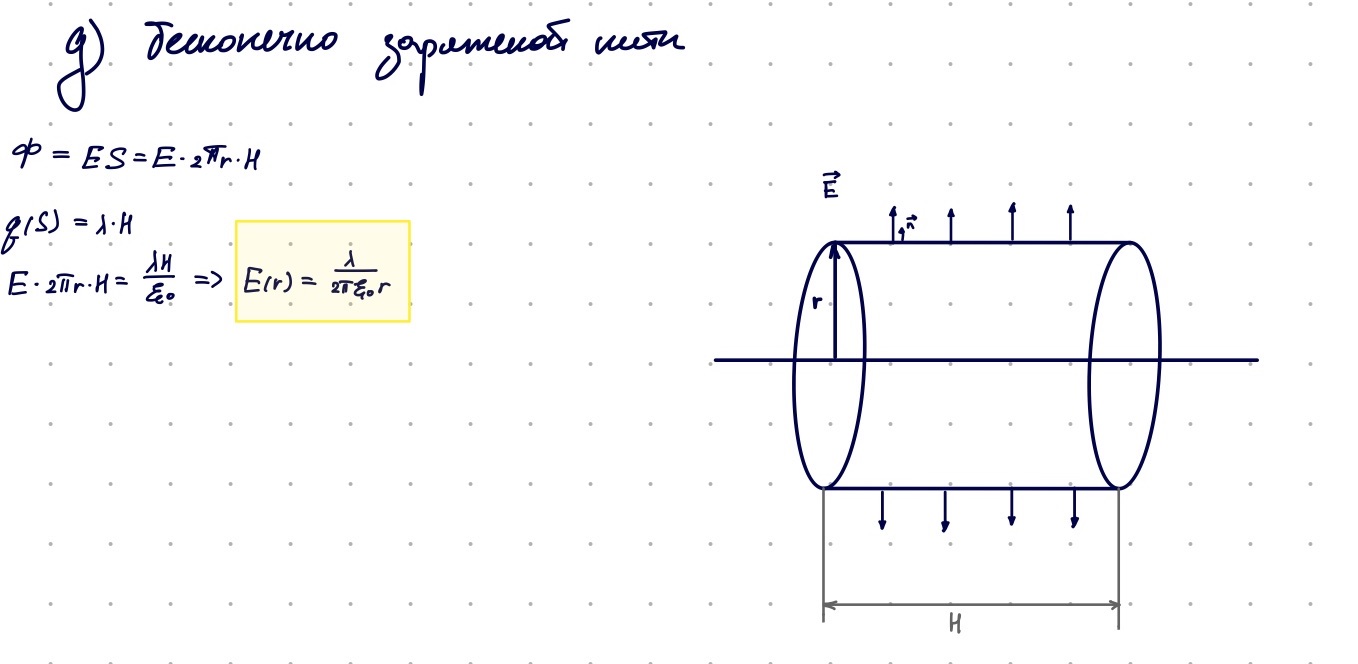 д) бесконечно заряженой нити
Ф = ES = E · 2πr · H
q(S) = λ · H
E · 2πr · H = λH/ε₀ => E(r) = λ/2πε₀r
E⃗
n⃗
r
H